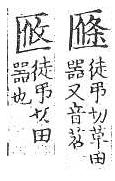 徒弔切草田
器又音苕
徒弔切田
器也